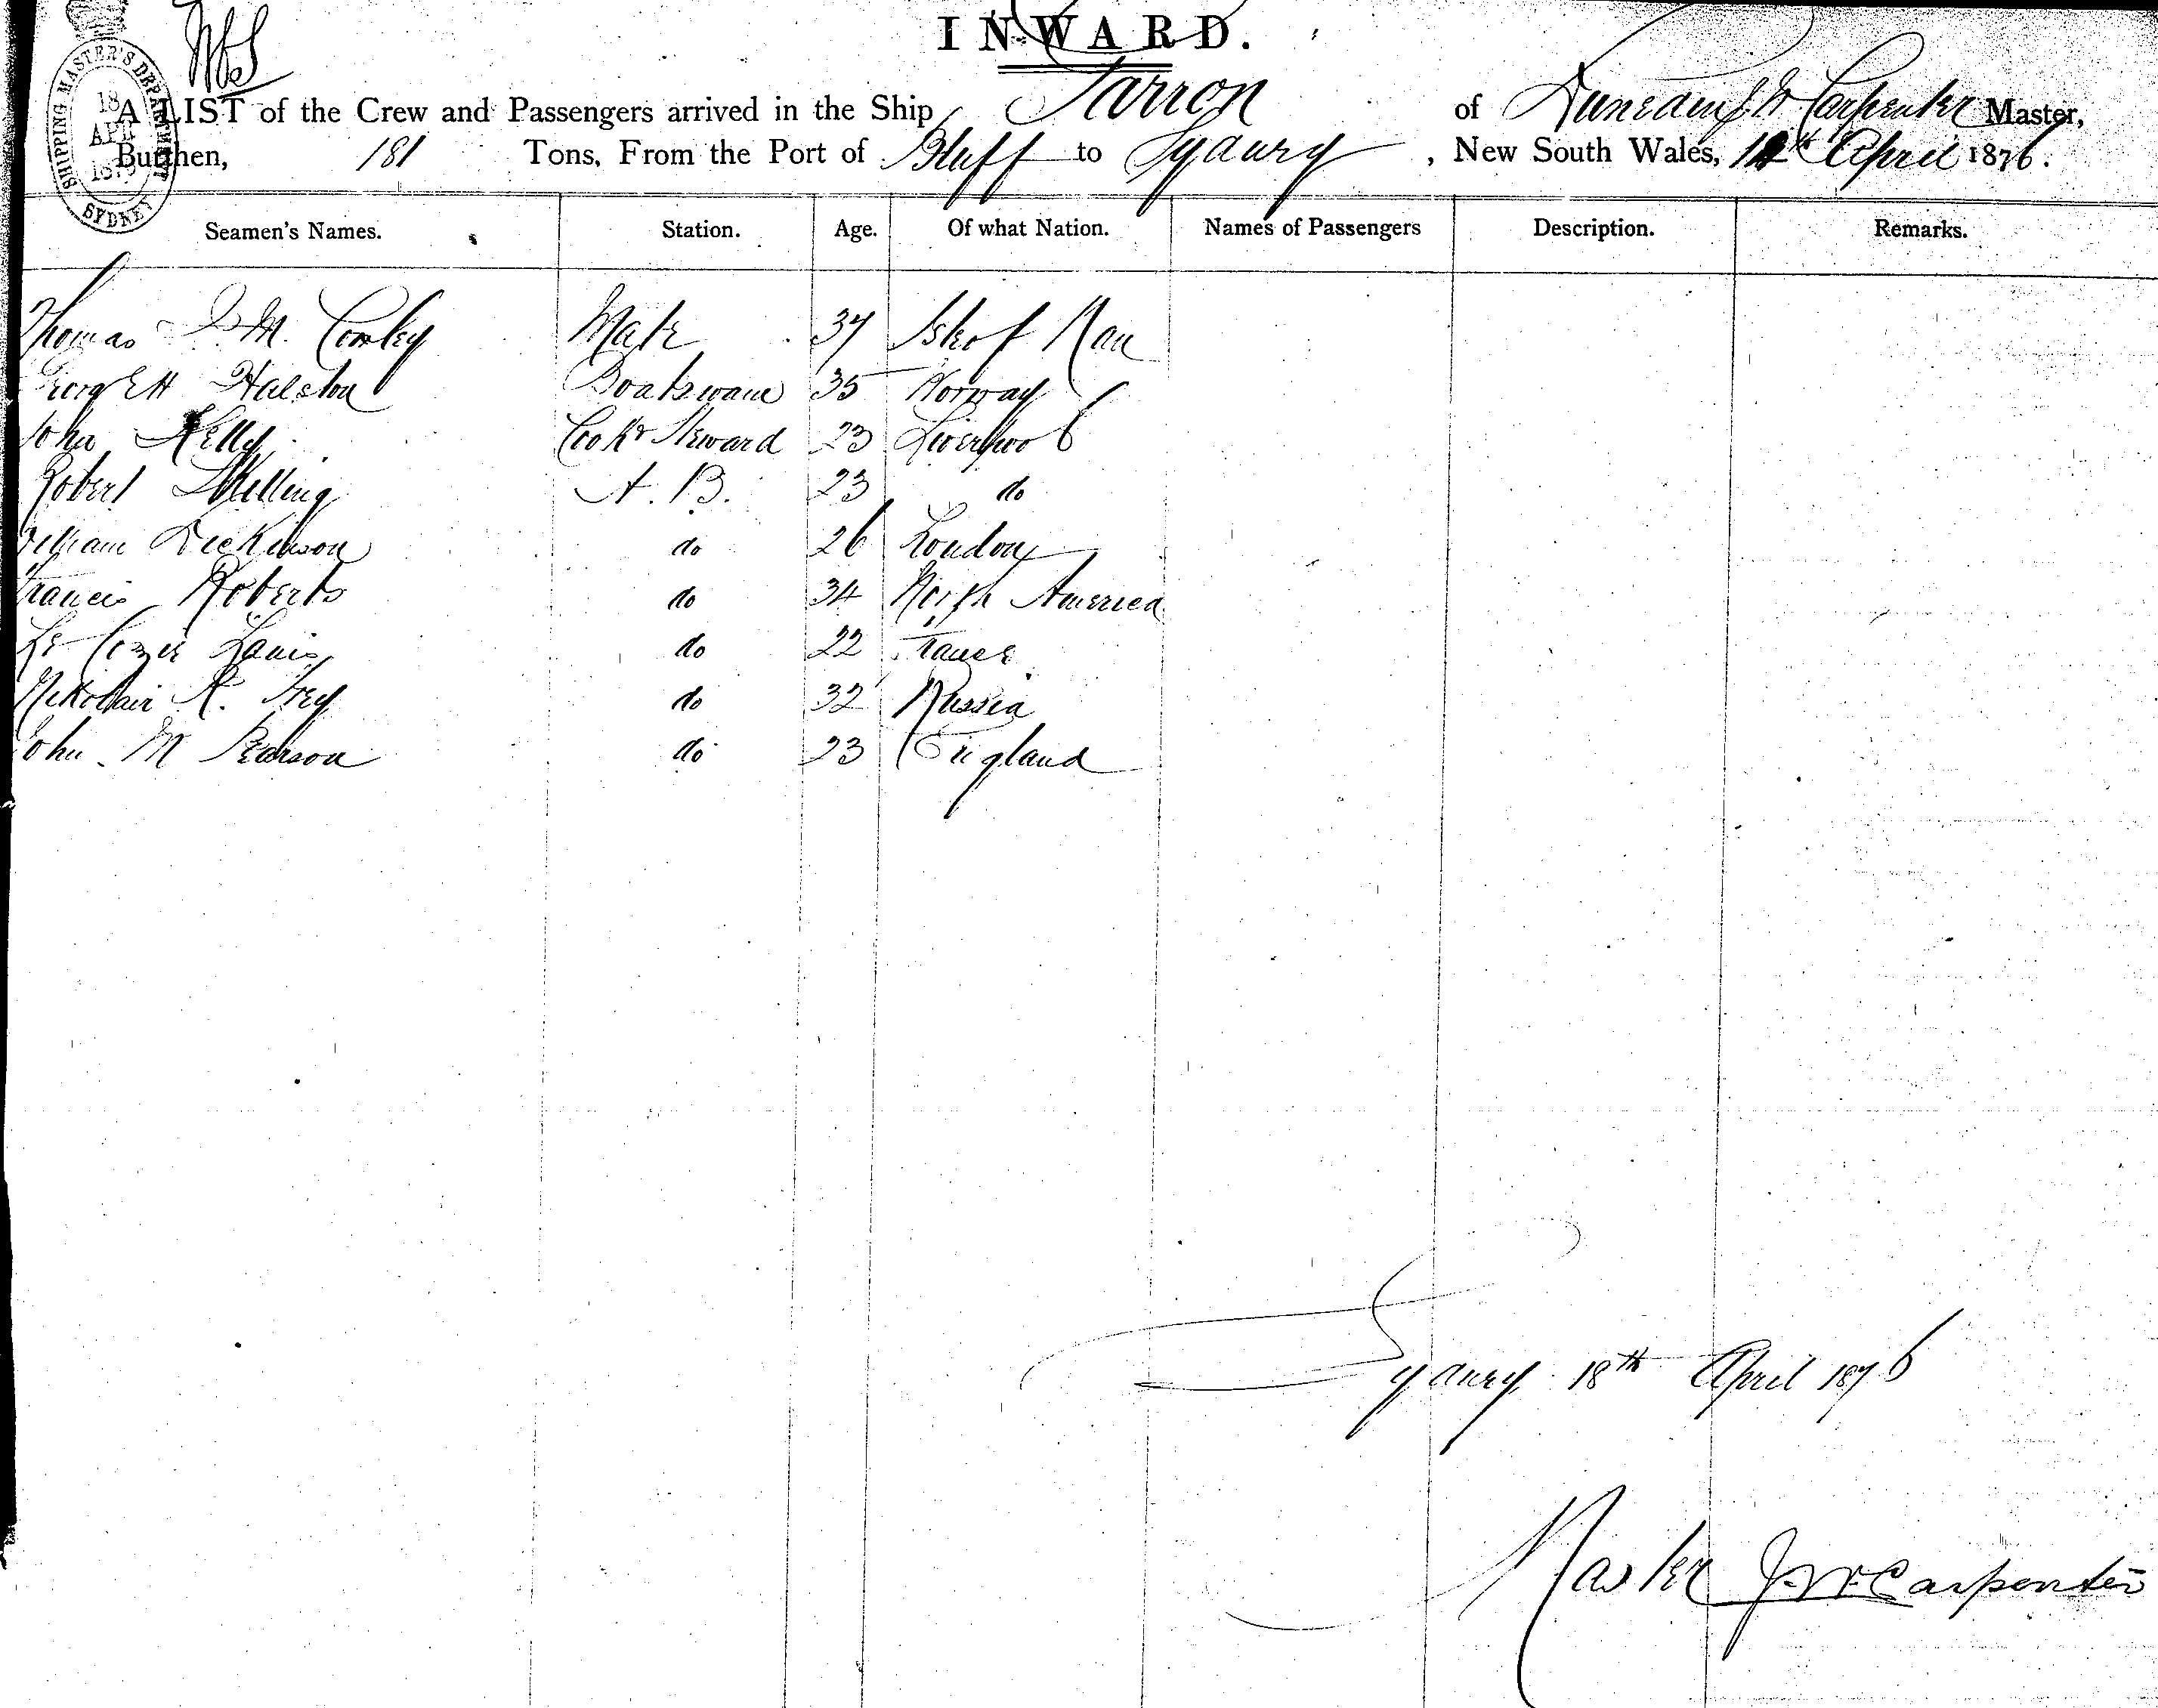 INWARD.
SHIPPING MASTER'S DEPARTMENT
18
APR
SYDNEY
A LIST of the Crew and Passengers arrived in the Ship Jarron of Dunedin J W Carpenter Master,
Burthen, 181 Tons, From the Port of Bluff to Sydney, New South Wales, April 1876.
Seamen's Names. Station. Age. Of what Nation. Names of Passengers Description. Remarks.
Thomas M. Cowley Mate 37 Isle of Man
Halston Boatswain 35 Norway
John Kelly Cook & Steward 23 Liverpool
Robert Skelling A. B. 23 do
William Dickinson do 26 London
Francis Roberts do 34 North America
Le Louis do 22 France
R. Frey do 32 Russia
John M Pearson do 23 England
Sydney 18th April 1876
Master J. W. Carpenter